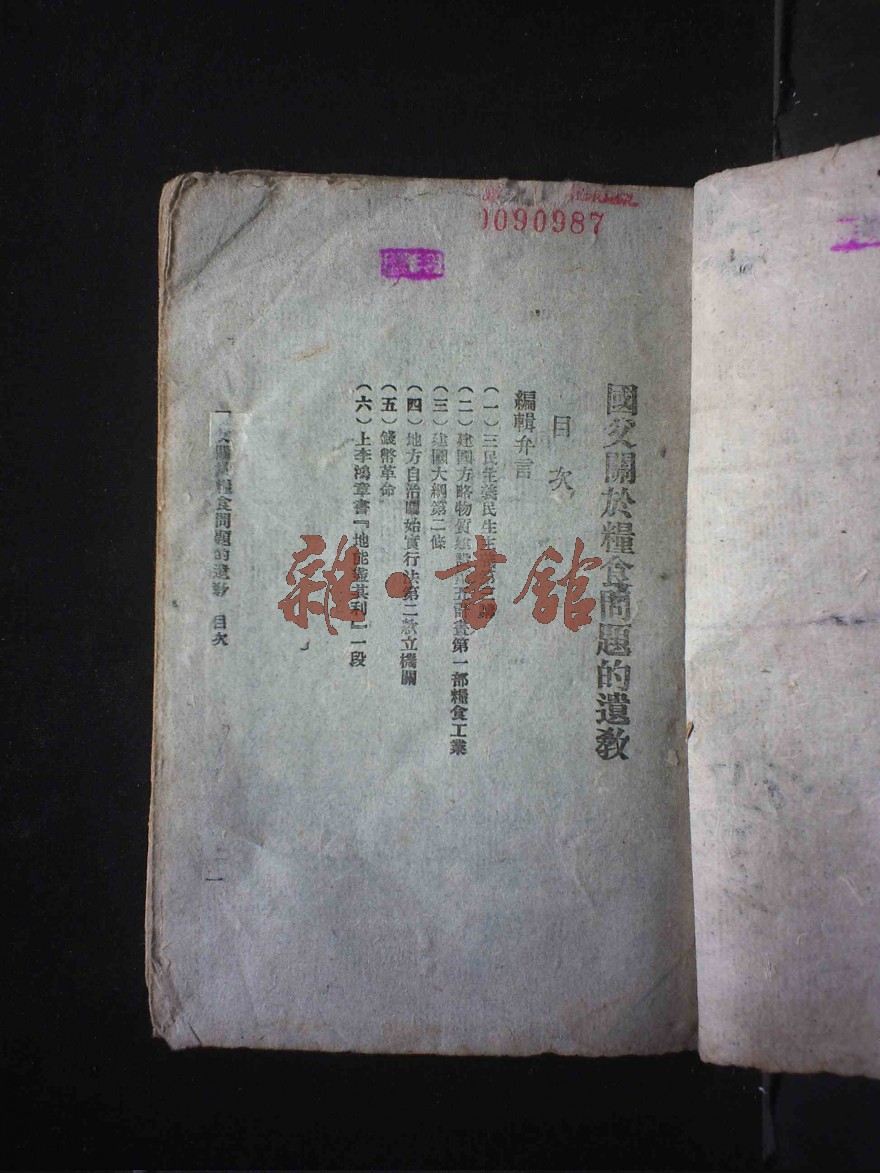 0090987
國父關於糧食問題的遺敎
目次
編輯弁言
(一)三民主義民生主義第三講
(二)建國方略物質建設第五計畫第一部糧食工業
(三)建國大綱第二條
(四)地方自治開始實行法第二款立機關
(五)錢幣革命
(六)上李鴻章書『地能盡其利』一段
父關於糧食問題的遺敎 目次
一
雜·書館